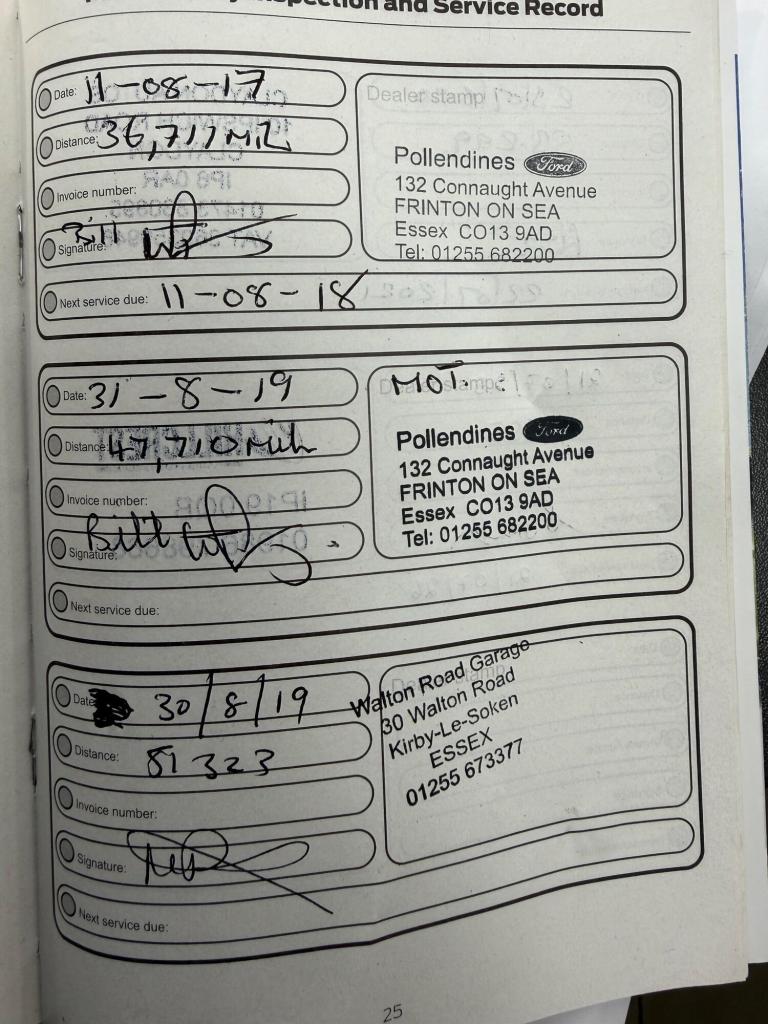 Inspection and Service Record
Date: 11-08-17
Distance: 36,711 MIL
Invoice number:
Signature: Bill
Next service due: 11-08-18
Dealer stamp
Pollendines Ford
132 Connaught Avenue
FRINTON ON SEA
Essex CO13 9AD
Tel: 01255 682200
Date: 31-8-19
Distance: 47,710 Mil
Invoice number:
Signature: Bill
Next service due:
Dealer stamp
MOT.
Pollendines Ford
132 Connaught Avenue
FRINTON ON SEA
Essex CO13 9AD
Tel: 01255 682200
Date 30/8/19
Distance: 51323
Invoice number:
Signature:
Next service due:
Dealer stamp
Walton Road Garage
30 Walton Road
Kirby-Le-Soken
ESSEX
01255 673377
25